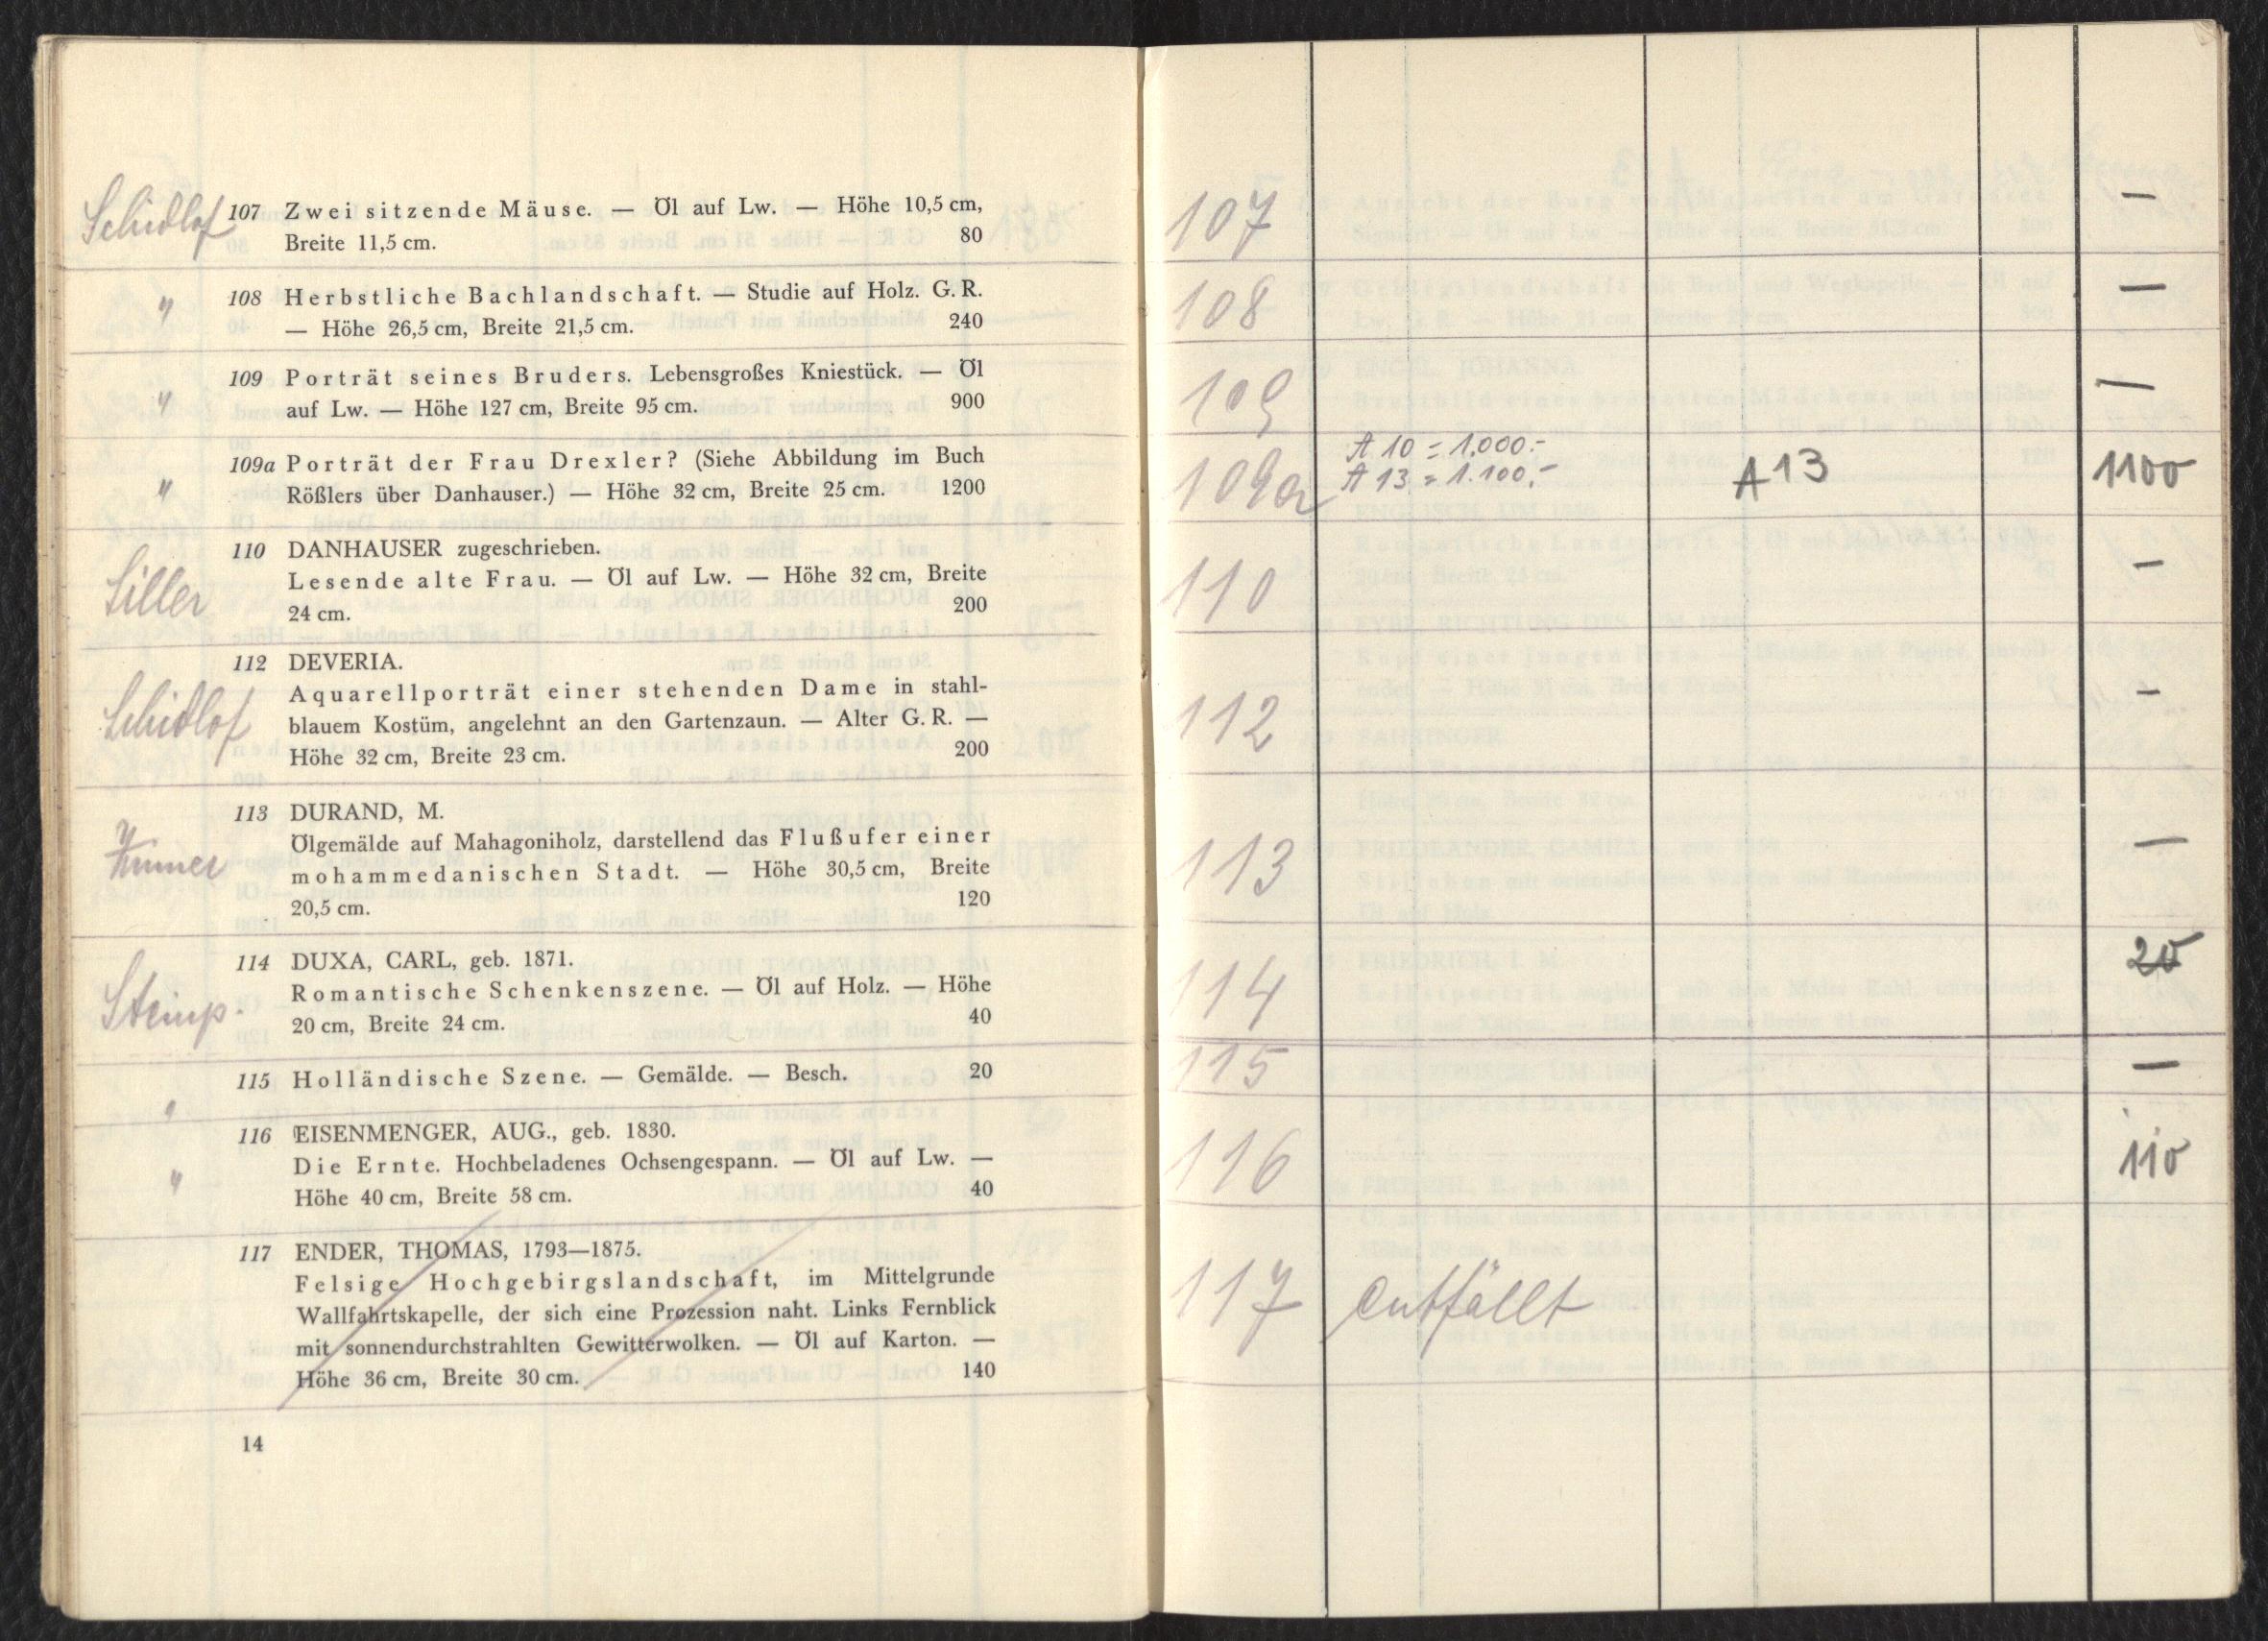 Schidlof 107 Zwei sitzende Mäuse. — Öl auf Lw. — Höhe 10,5 cm,
Breite 11,5 cm. 80
" 108 Herbstliche Bachlandschaft. — Studie auf Holz. G. R.
— Höhe 26,5 cm, Breite 21,5 cm. 240
" 109 Porträt seines Bruders. Lebensgroßes Kniestück. — Öl
auf Lw. — Höhe 127 cm, Breite 95 cm. 900
" 109a Porträt der Frau Drexler? (Siehe Abbildung im Buch
Rößlers über Danhauser.) — Höhe 32 cm, Breite 25 cm. 1200
110 DANHAUSER zugeschrieben.
Siller Lesende alte Frau. — Öl auf Lw. — Höhe 32 cm, Breite
24 cm. 200
112 DEVERIA.
Schidlof Aquarellporträt einer stehenden Dame in stahl-
blauem Kostüm, angelehnt an den Gartenzaun. — Alter G. R. —
Höhe 32 cm, Breite 23 cm. 200
113 DURAND, M.
Ölgemälde auf Mahagoniholz, darstellend das Flußufer einer
mohammedanischen Stadt. — Höhe 30,5 cm, Breite
20,5 cm. 120
114 DUXA, CARL, geb. 1871.
Romantische Schenkenszene. — Öl auf Holz. — Höhe
20 cm, Breite 24 cm. 40
115 Holländische Szene. — Gemälde. — Besch. 20
"
116 EISENMENGER, AUG., geb. 1830.
Die Ernte. Hochbeladenes Ochsengespann. — Öl auf Lw. —
" Höhe 40 cm, Breite 58 cm. 40
117 ENDER, THOMAS, 1793—1875.
Felsige Hochgebirgslandschaft, im Mittelgrunde
Wallfahrtskapelle, der sich eine Prozession naht. Links Fernblick
mit sonnendurchstrahlten Gewitterwolken. — Öl auf Karton. —
Höhe 36 cm, Breite 30 cm. 140
14
107 —
108 —
109 —
A 10 = 1,000.-
109a A 13 = 1.100,- A 13 1100
110 —
112 —
113 —
114 20
115 —
116 110
117 entfällt